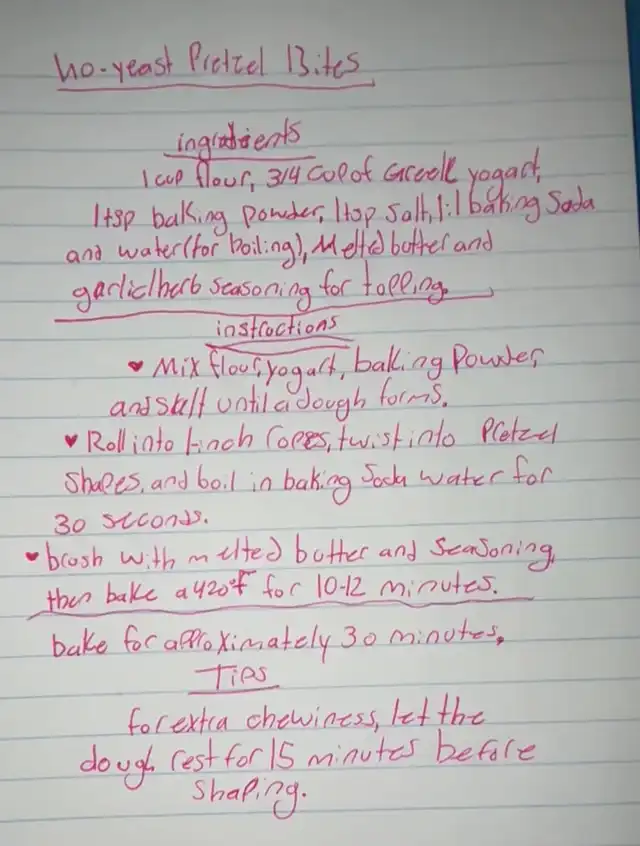 no-yeast Pretzel Bites
ingredients
1 cup flour, 3/4 cup of Greek yogart,
1tsp baking powder, 1tsp salt, 1:1 baking Soda
and water (for boiling), Melted butter and
garlic/herb seasoning for topping.
instructions
♥ Mix flour, yogart, baking Powder,
and salt until a dough forms.
♥ Roll into 1-inch ropes, twist into Pretzel
Shapes, and boil in baking Soda water for
30 seconds.
♥ brush with melted butter and Seasoning,
then bake a 420°F for 10-12 minutes.
bake for approximately 30 minutes.
Tips
for extra chewiness, let the
dough rest for 15 minutes before
shaping.